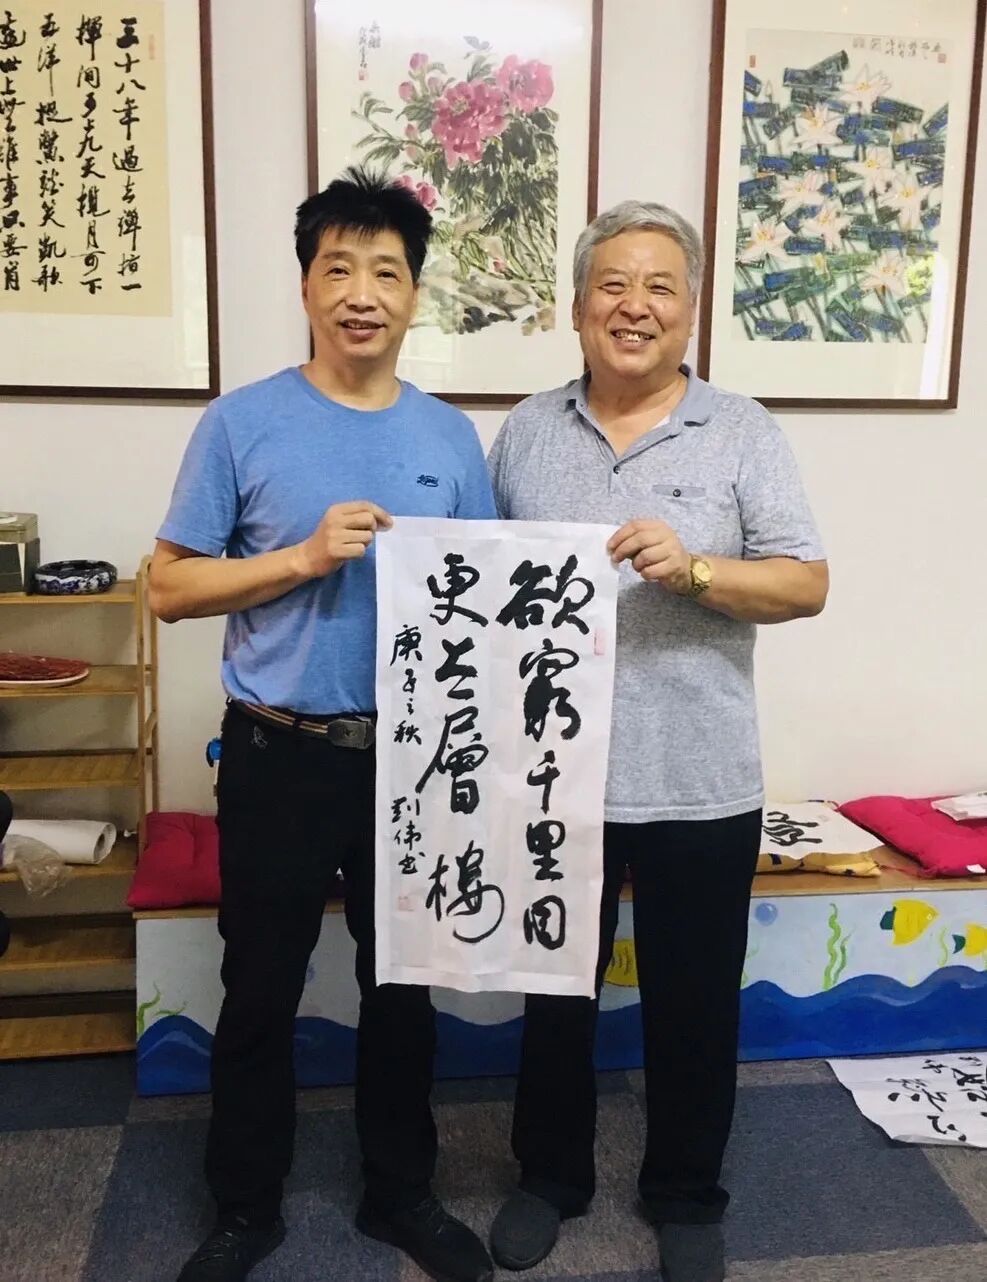 三十八年過去彈指一
揮间可上九天攬月可下
五洋捉鱉談笑凱歌
還世上無難事只要肯
欲窮千里目
更上一層樓
庚子之秋 刘伟书